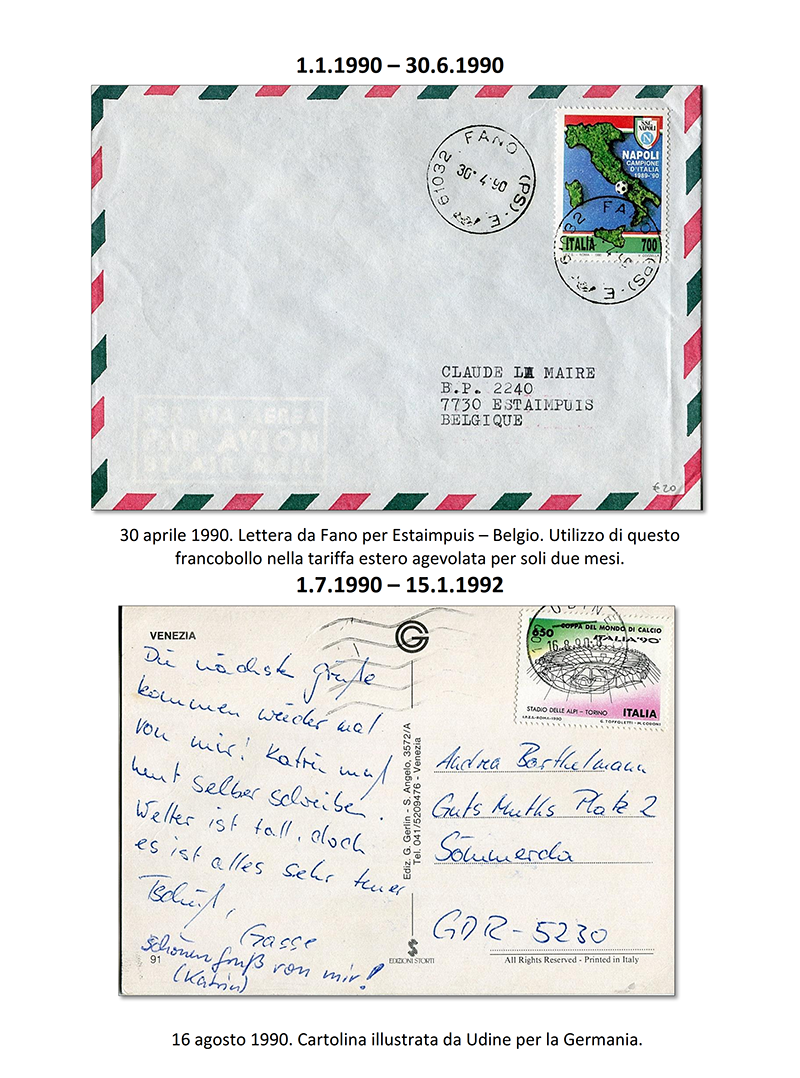 1.1.1990 – 30.6.1990
FANO
61032 (PS)-E
30·4·90
SSC NAPOLI
N
NAPOLI
CAMPIONE
D'ITALIA
1989-'90
ITALIA 700
CLAUDE LA MAIRE
B.P. 2240
7730 ESTAIMPUIS
BELGIQUE
PAR AVION
BY AIR MAIL
€ 20
30 aprile 1990. Lettera da Fano per Estaimpuis – Belgio. Utilizzo di questo
francobollo nella tariffa estero agevolata per soli due mesi.
1.7.1990 – 15.1.1992
VENEZIA
Die nächsten Grüße
kommen wieder mal
von mir! Katrin muß
heut selber schreiben.
Wetter ist toll, doch
es ist alles sehr teuer
Tschüß,
Gasse
schönen Gruß von mir!
(Katrin)
91
Ediz. G. Gerlin - S. Angelo, 3572/A
Tel. 041/5209476 - Venezia
EDIZIONI STORTI
UDINE
16.8.90
650
COPPA DEL MONDO DI CALCIO
ITALIA '90
STADIO DELLE ALPI - TORINO
ITALIA
I.P.Z.S.-ROMA-1990
G. TOFFOLETTI - M. CODONI
Andrea Barthelmann
Guts Muths Platz 2
Sömmerda
GDR-5230
All Rights Reserved - Printed in Italy
16 agosto 1990. Cartolina illustrata da Udine per la Germania.